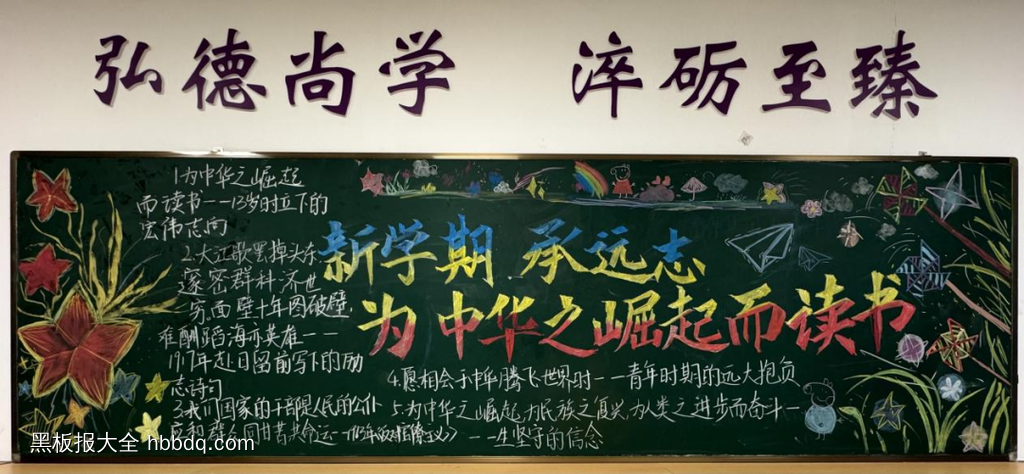 弘德尚学 淬砺至臻
1.为中华之崛起
而读书——13岁时立下的
宏伟志向
2.大江歌罢掉头东
邃密群科济世
穷面壁十年图破壁,
难酬蹈海亦英雄——
1917年赴日留前写下的励
志诗句
3.我们国家的干部是人民的公仆
新学期 承远志
为中华之崛起而读书
4.愿相会于中华腾飞世界时——青年时期的远大抱负
5.为中华之崛起,为民族之复兴,为人类之进步而奋斗——
一生坚守的信念
黑板报大全 hbbdq.com